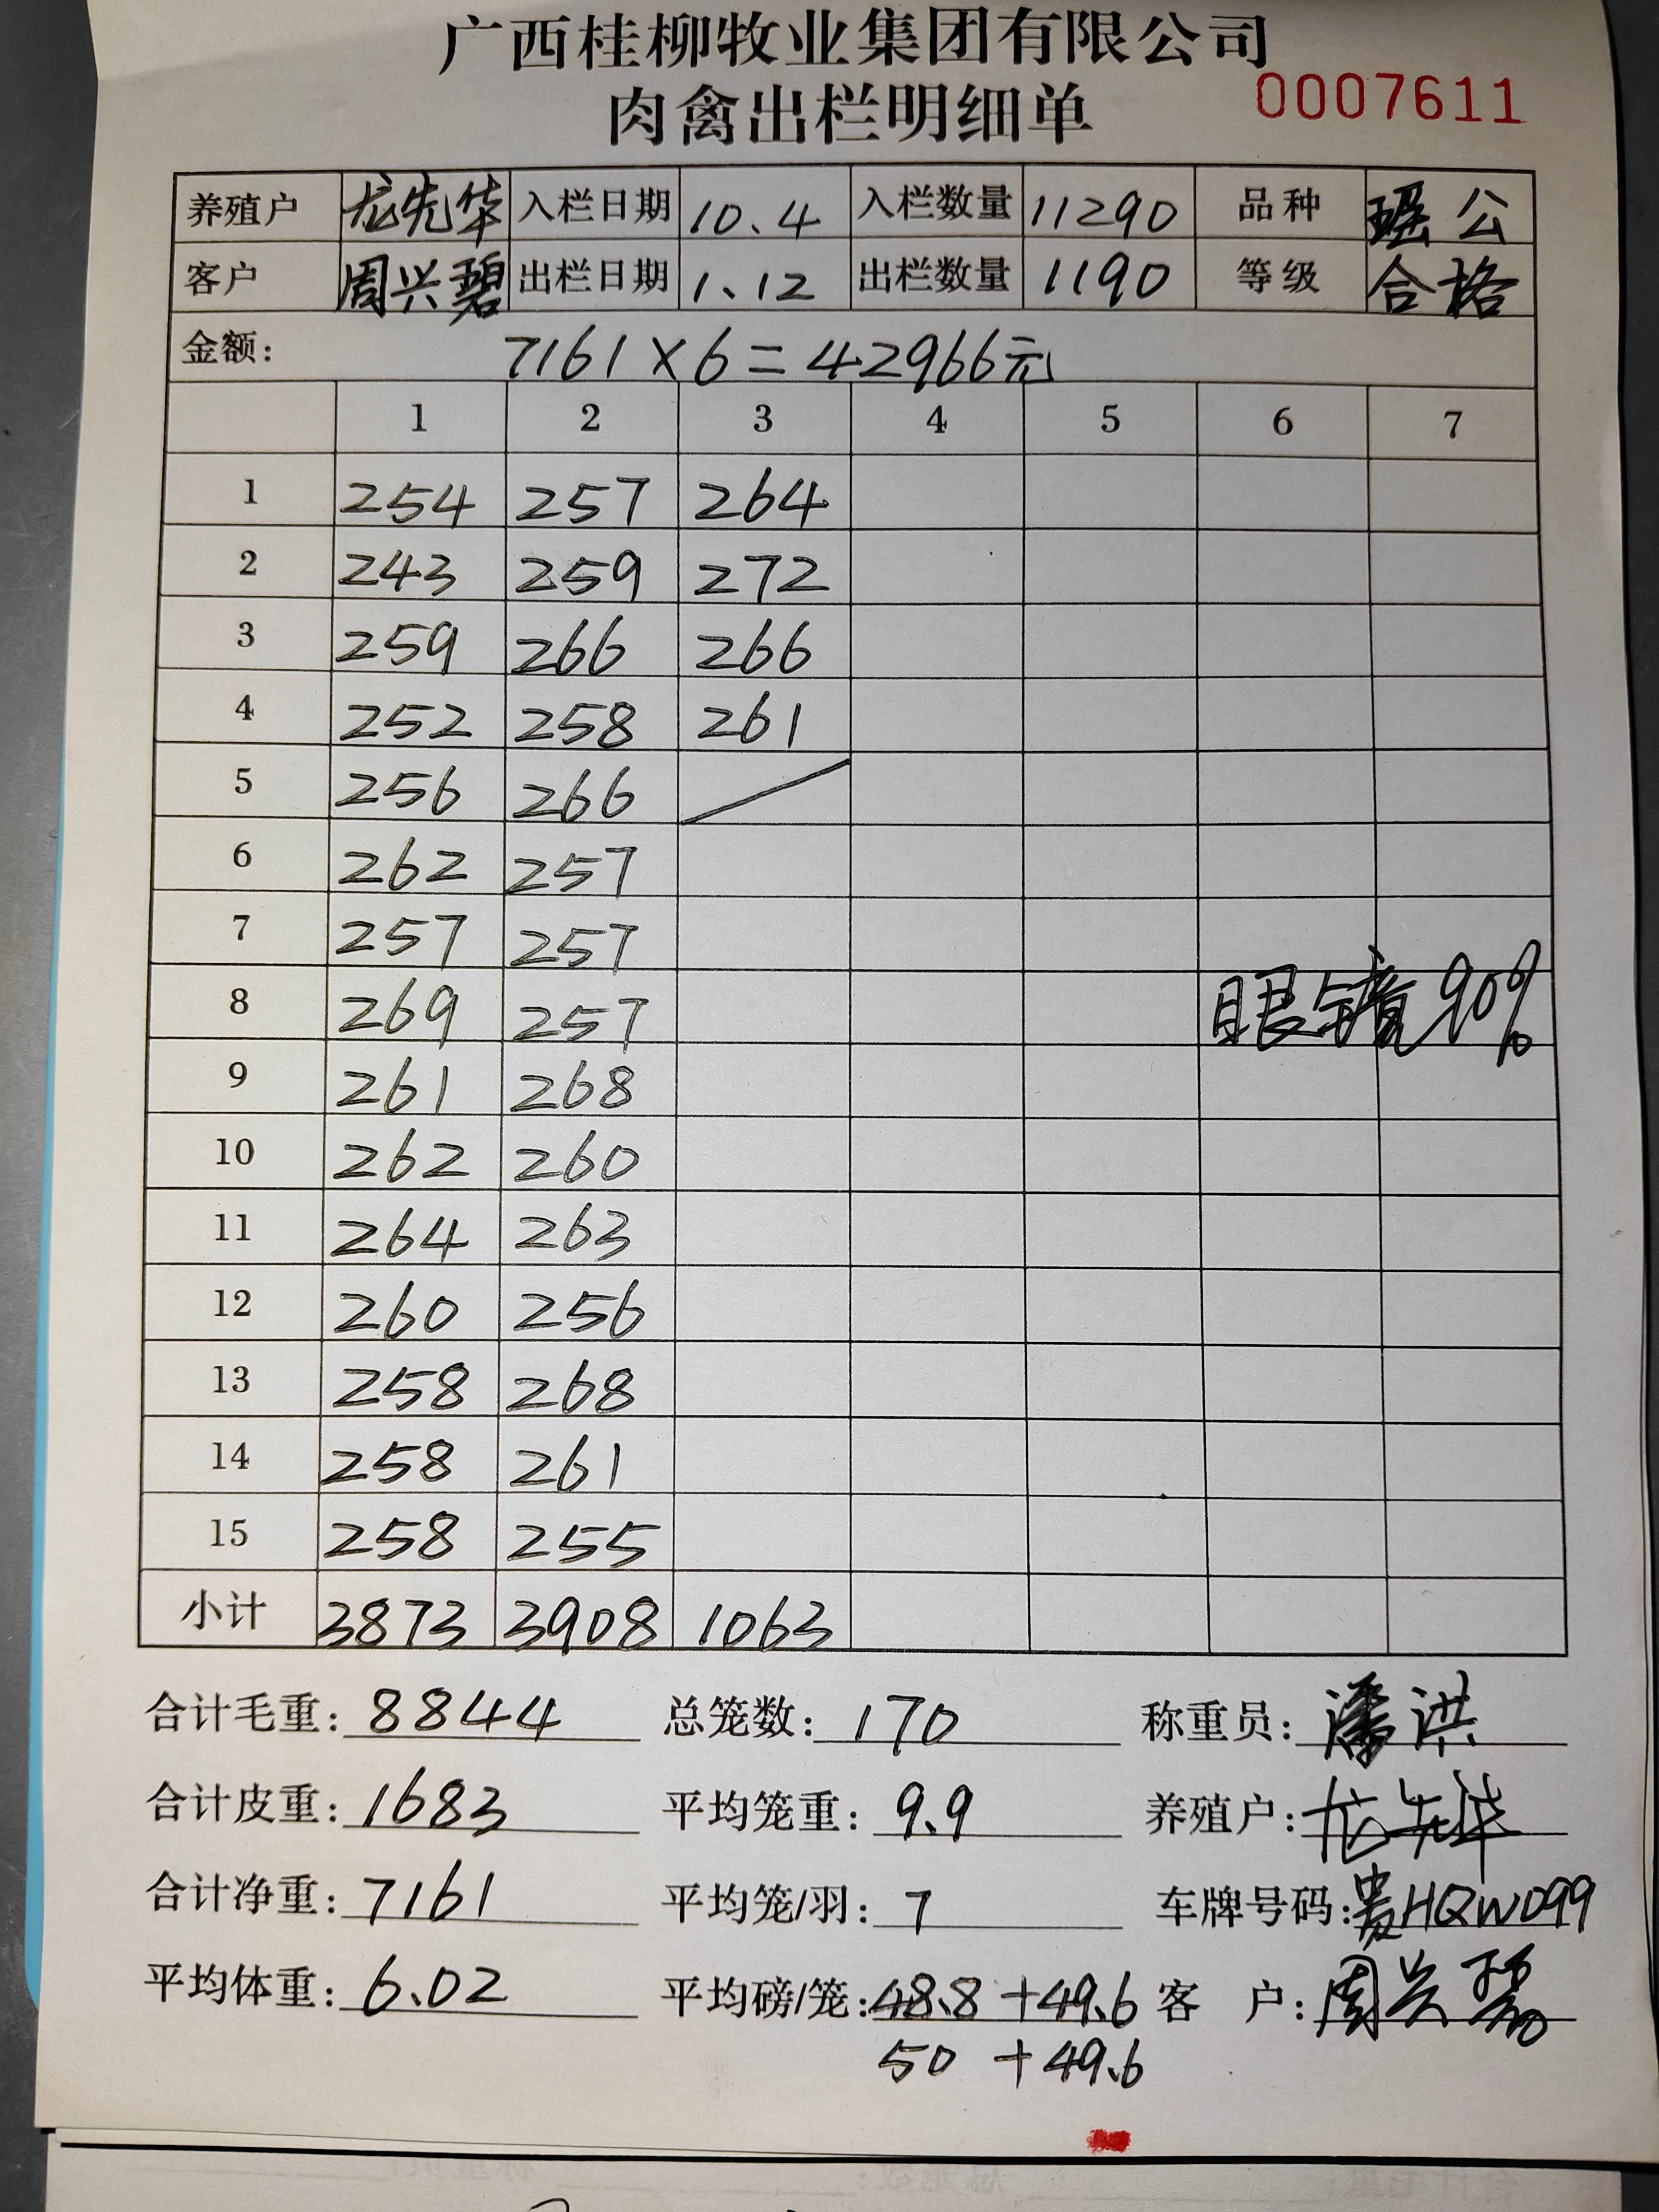 广西桂柳牧业集团有限公司
肉禽出栏明细单
0007611
养殖户 龙先华 入栏日期 10.4 入栏数量 11290 品种 瑶公
客户 周兴碧 出栏日期 1.12 出栏数量 1190 等级 合格
金额: 7161×6=42966元
1 2 3 4 5 6 7
1 254 257 264
2 243 259 272
3 259 266 266
4 252 258 261
5 256 266
6 262 257
7 257 257
8 269 257 眼镜90%
9 261 268
10 262 260
11 264 263
12 260 256
13 258 268
14 258 261
15 258 255
小计 3873 3908 1063
合计毛重: 8844 总笼数: 170 称重员: 潘洪
合计皮重: 1683 平均笼重: 9.9 养殖户: 龙先华
合计净重: 7161 平均笼/羽: 7 车牌号码: 贵HQW099
平均体重: 6.02 平均磅/笼: 48.8+49.6 客户: 周兴碧
50+49.6